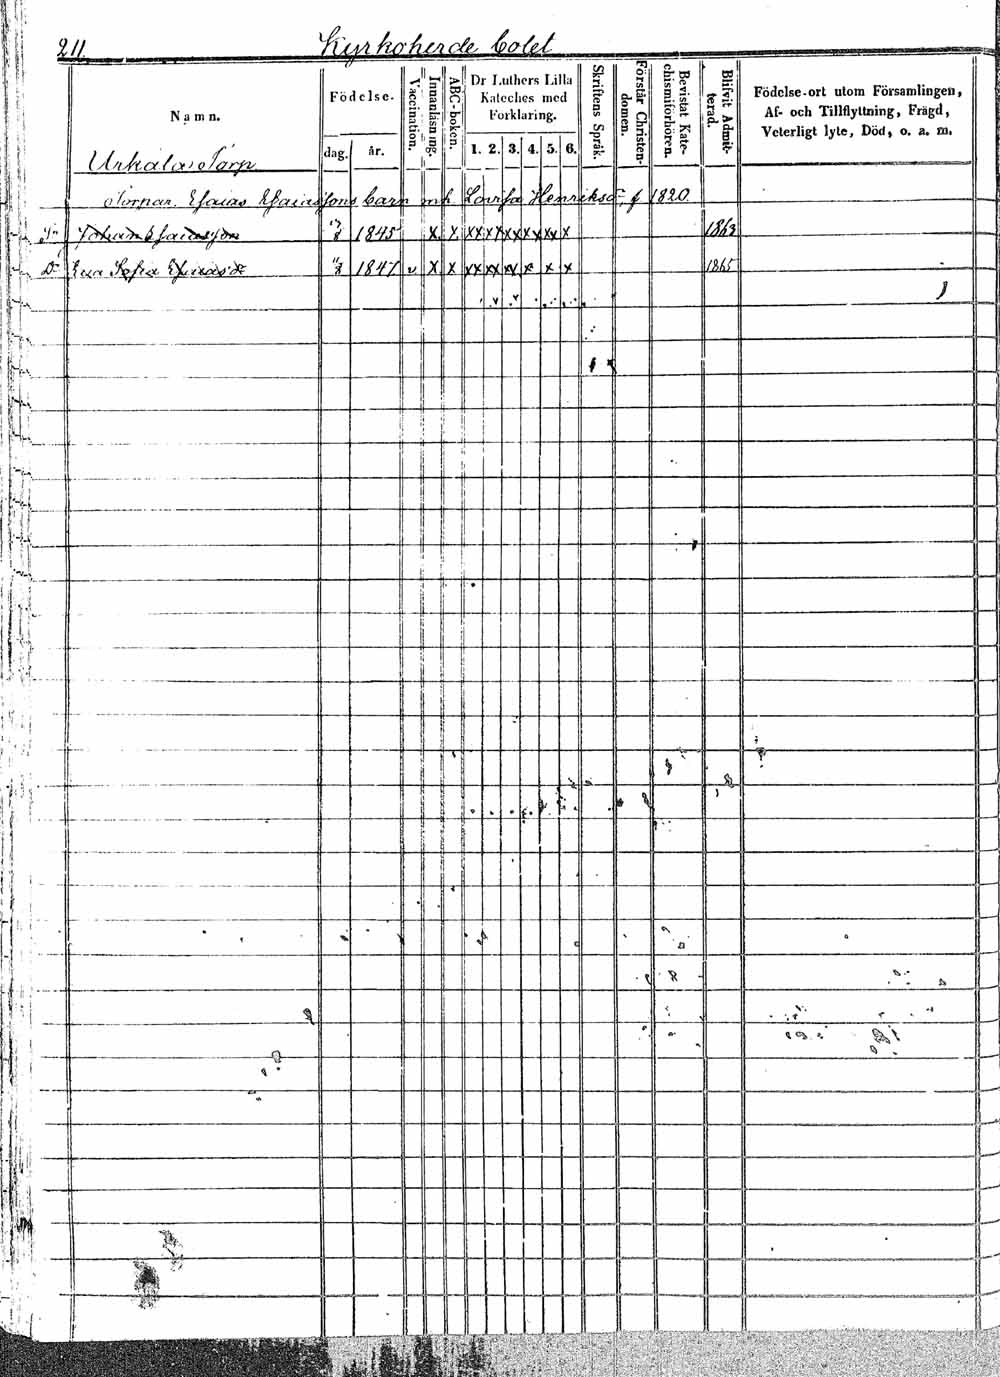 211. Kyrkoherde Bolet
Namn.
Födelse.
dag. år.
Vaccination.
Innanläsning.
ABC-boken.
Dr Luthers Lilla
Kateches med
Förklaring.
1. 2. 3. 4. 5. 6.
Skriftens Språk.
Förstår Christen-
domen.
Bevistat Kate-
chismiförhören.
Blifvit Admit-
terad.
Födelse-ort utom Församlingen,
Af- och Tillflyttning, Frägd,
Veterligt lyte, Död, o. a. m.
Urkala Torp
Torpar. Esaias Esaiassons barn m h Lovisa Henriksd f 1820.
Johan Esaiasson 1845 x x x x x x x x x x x x 1863
D. Eva Sofia Esaiasd 1847 v x x x x x x x x x x x 1865